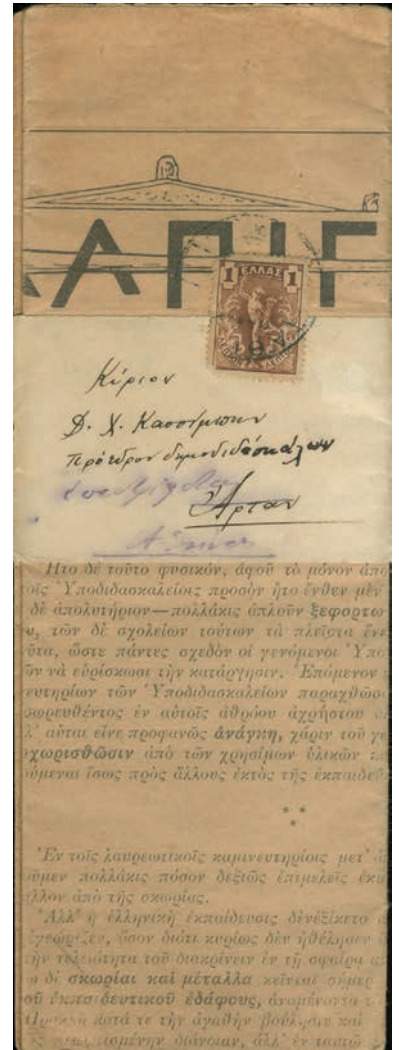 ΑΠΙΓ
1 ΕΛΛΑΣ 1
Κύριον
Δ. Χ. Κασσίμωτην
Πρόεδρον δημοδιδασκάλων
Ἄρταν
Ητο δὲ τοῦτο φυσικόν, ἀφοῦ τὸ μόνον ἀπο
οῖς Ὑποδιδασκαλείοις προσὸν ἦτο ἔνθεν μὲν
δὲ ἀπολυτήριον—πολλάκις ἁπλοῦν ξεφορτω
υ, τῶν δὲ σχολείων τούτων τὰ πλεῖστα
ῦτα, ὥστε πάντες σχεδὸν οἱ γενόμενοι Ὑπο
ῶν νὰ εὑρίσκωσι τὴν κατάργησιν. Ἑπόμενον
ευτηρίων τῶν Ὑποδιδασκαλείων παραχθῶσ
σωρευθέντος ἐν αὐτοῖς ἀθρόου ἀχρήστου
λ' αὗται εἶνε προφανῶς ἀνάγκη, χάριν τοῦ γ
χωρισθῶσιν ἀπὸ τῶν χρησίμων ὑλικῶν
ούμεναι ἴσως πρὸς ἄλλους ἐκτὸς τῆς ἐκπαιδε
* * *
Ἐν τοῖς λαυρεωτικοῖς καμινευτηρίοις μετ'
οῦμεν πολλάκις πόσον δεξιῶς ἐπιμελεῖς
άλλον ἀπὸ τῆς σκωρίας.
Ἀλλ' ἡ ἑλληνικὴ ἐκπαίδευσις δὲν ἐξίκετο
ὅσον διότι κυρίως δὲν ἠθέλησεν
τὴν τελειότητα τοῦ διακρίνειν ἐν τῇ σφαίρᾳ
δὲ σκωρίαι καὶ μέταλλα κεῖνται σήμερ
οῦ ἐκπαιδευτικοῦ ἐδάφους, ἀναμένοντα
κατά τε τὴν ἀγαθὴν βούλησιν καὶ
διάνοιαν, ἀλλ' ἐν ταυτῷ